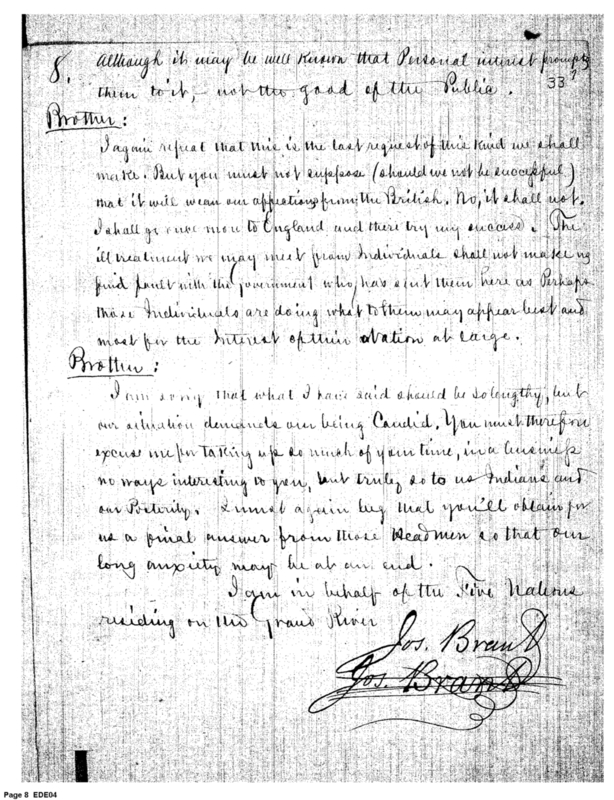 8. Although it may be well known that Personal interest prompts
them to it, - not the good of the Public.
33
Brother:
I again repeat that this is the last request of this kind we shall
make. But you must not suppose (should we not be successful)
that it will wean our affections from the British. No, it shall not.
I shall go once more to England and there try my success. The
ill treatment we may meet from Individuals shall not make us
find fault with the Government who has sent them here as Perhaps
those Individuals are doing what to them may appear best and
most for the Interest of their Nation at large.
Brother:
I am sorry that what I have said should be so lengthy, but
our situation demands our being Candid. You must therefore
excuse me for taking up so much of your time, in a business
no ways interesting to you, but truly so to us Indians and
our Posterity. I must again beg that you'll obtain for
us a final answer from those Headmen so that our
long anxiety may be at an end.
I am in behalf of the Five Nations
residing on the Grand River
Jos. Brant
Jos. Brant
Page 8 EDE04